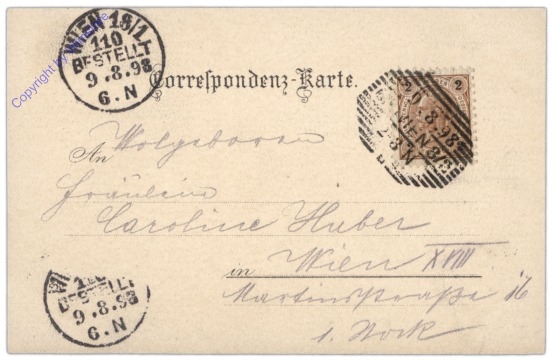 WIEN 18/1.
110
BESTELLT
9.8.98
6.N
Correspondenz-Karte.
2 2
9.8.98
2-3N
An Wolgeboren
Fräulein
Caroline Huber
in Wien XVIII
Martinsstraße 16
1. Stock
110
BESTELLT
9.8.98
6.N
Copyright by